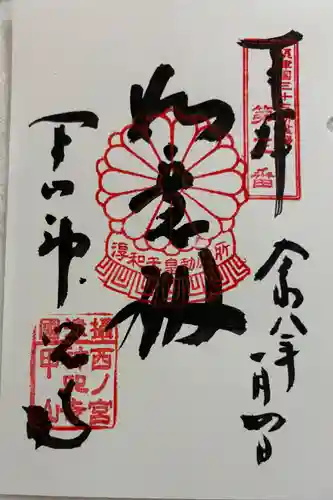 奉拝
摂津国三十三
第 番
令和八年
一月四日
如意輪
淳和天皇勅願所
甲山
神呪寺
摂西ノ宮
甲山